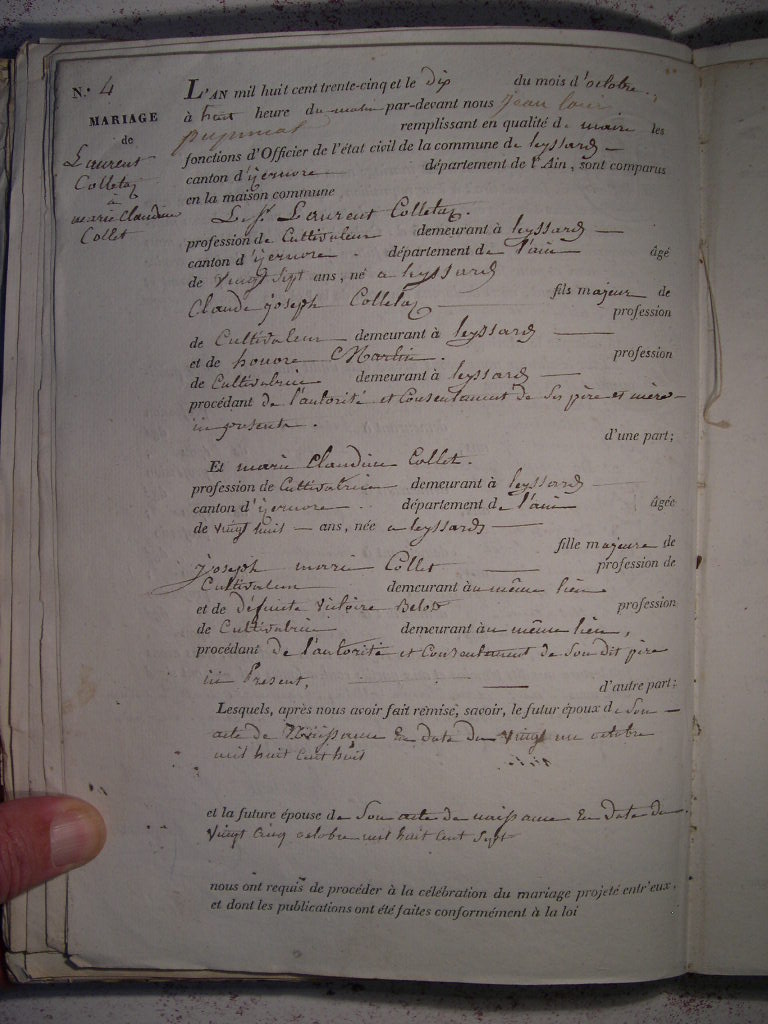 N.° 4
MARIAGE
de
Laurent
Colletaz
à
marie Claudine
Collet
L'AN mil huit cent trente-cinq et le dix du mois d'octobre,
à huit heure du matin par-devant nous jean louis
remplissant en qualité de maire les
fonctions d'Officier de l'état civil de la commune de leyssard
canton d'izernore département de l'Ain, sont comparus
en la maison commune
Le Sr. Laurent Colletaz.
profession de Cultivateur demeurant à leyssard
canton d'izernore département de l'ain âgé
de vingt sept ans, né a leyssard
fils majeur de
Claude joseph Colletaz profession
de Cultivateur demeurant à leyssard
et de honore Martin. profession
de Cultivatrice demeurant à leyssard
procédant de l'autorité et Consentement de ses père et mère
ici presents.
d'une part;
Et marie Claudine Collet.
profession de Cultivatrice demeurant à leyssard
canton d'izernore département de l'ain âgée
de vingt huit ans, née a leyssard
fille majeure de
joseph marie Collet profession de
Cultivateur demeurant au même lieu
et de défunte victoire Belod profession
de Cultivatrice demeurant au même lieu,
procédant de l'autorité et Consentement de Son dit père
ici Present,
d'autre part;
Lesquels, après nous avoir fait remise, savoir, le futur époux de Son
acte de Naissance En date du vingt un octobre
mil huit cent huit
et la future épouse de Son acte de naissance En date du
vingt cinq octobre mil huit Cent Sept
nous ont requis de procéder à la célébration du mariage projeté entr'eux,
et dont les publications ont été faites conformément à la loi